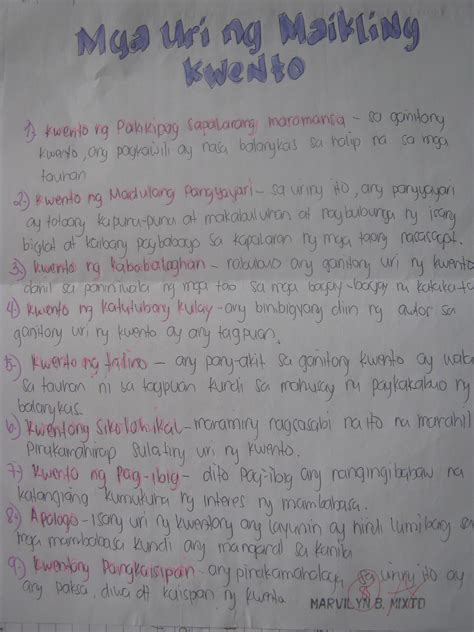 Mga Uri ng Maikling
Kwento
1) Kwento ng Pakikipag sapalarang maromansa - sa ganitong
kwento, ang pagkawili ay nasa balangkas sa halip na sa mga
tauhan
2.) Kwento ng Madulang Pangyayari - sa uring ito, ang pangyayari
ay totoong kapuna-puna at makabuluhan at nagbubunga ng isang
bigla at kaibang pagbabago sa kapalaran ng mga taong nasasangkot.
3.) Kwento ng Kababalaghan - nabubuo ang ganitong uri ng kwento
dahil sa paniniwala ng mga tao sa mga bagay-bagay na kataka-ta
4.) Kwento ng Katutubong kulay - ang binibigyang diin ng autor sa
ganitong uri ng kwento ay ang tagpuan.
5.) Kwento ng talino - ang pang-akit sa ganitong kwento ay wala
sa tauhan ni sa tagpuan kundi sa mahusay na pagkakabuo ng
balangkas.
6.) Kwentong Sikolohikal - maraming nagsasabi na ito na marahil
Pinakamahirap sulating uri ng kwento.
7.) Kwento ng Pag-ibig - dito Pag-ibig ang nangingibabaw na
katangiang kumukuha ng interes ng mambabasa.
8.) Apologo - isang uri ng kwentong ang layunin ay hindi lumibang sa
mga mambabasa kundi ang mangaral sa kanila
9.) Kwentong Pangkaisipan - ang pinakamahalaga sa uring ito ay
ang paksa, diwa at kaispan ng kwnto
MARVILYN B. MIXTO